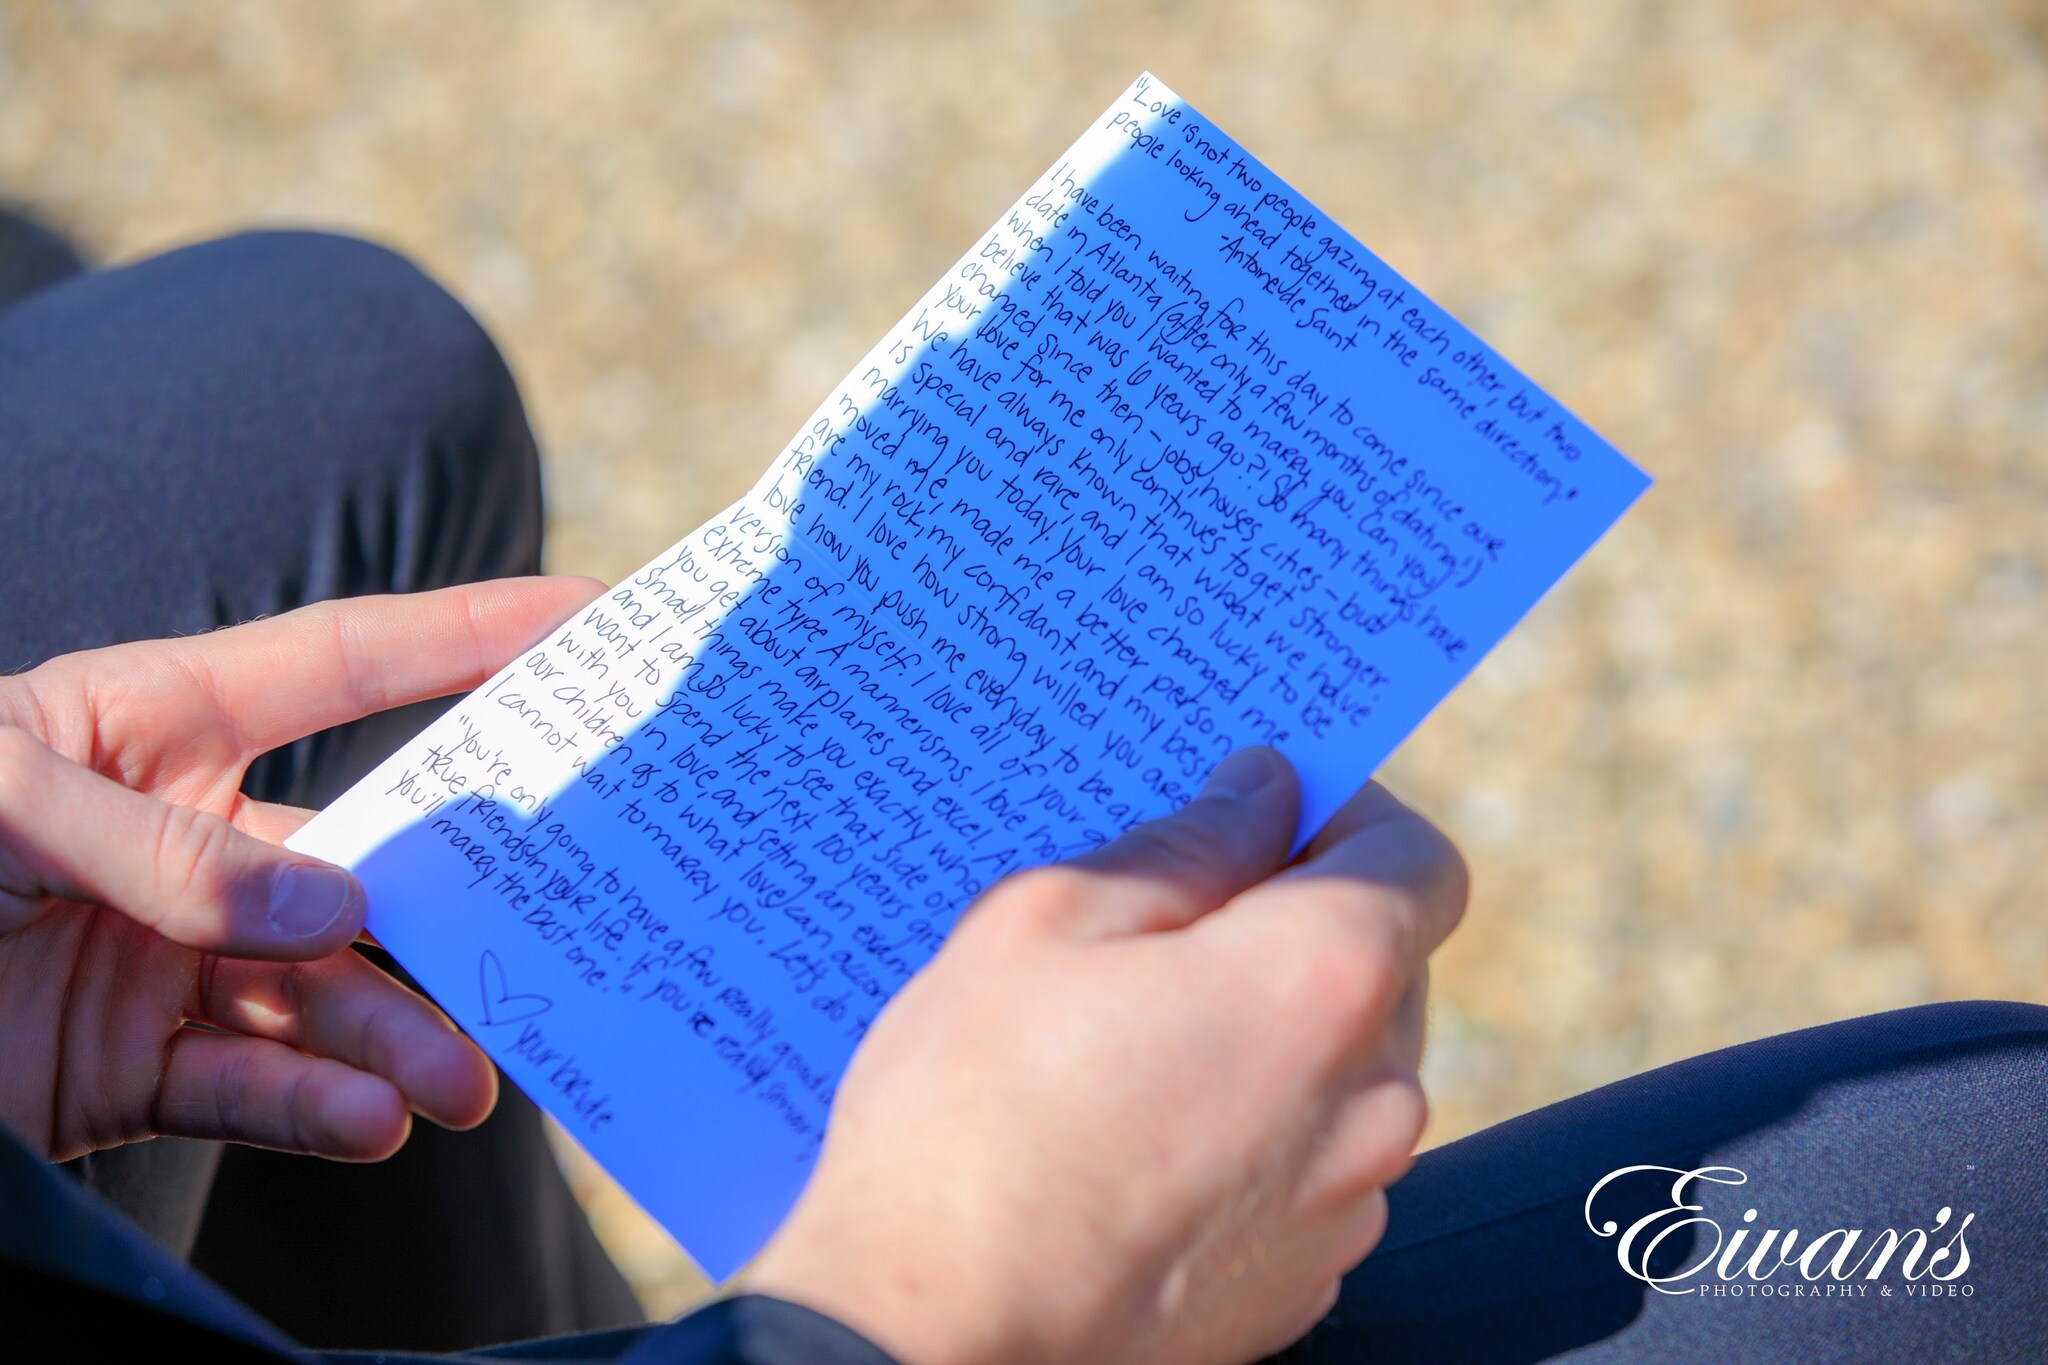 "Love is not two people gazing at each other, but two
people looking ahead together in the same direction."
-Antoine de Saint
I have been waiting for this day to come since our
date in Atlanta (after only a few months of dating!)
when I told you I wanted to marry you. Can you
believe that was 6 years ago?! So many things have
changed since then - jobs, houses, cities - but
your love for me only continues to get stronger.
We have always known that what we have
is special and rare, and I am so lucky to be
marrying you today. Your love changed me
moved me, made me a better person
are my rock, my confidant, and my best
friend. I love how strong willed you are
love how you push me everyday to be a
version of myself. I love all of your
extreme type A mannerisms. I love how
you get about airplanes and excel.
small things make you exactly who
and I am so lucky to see that side of
want to spend the next 100 years
with you in love, and setting an
our children as to what love can
I cannot wait to marry you. Let's do
"You're only going to have a few really good
true friends in your life. If you're really smart,
you'll marry the best one."
♡ your bride
Eivan's
™
PHOTOGRAPHY & VIDEO